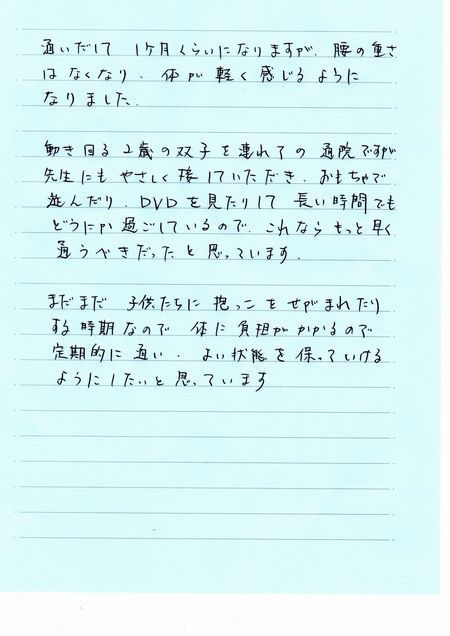 通いだして 1ヶ月くらいになりますが、腰の重さ
はなくなり、体が軽く感じるように
なりました。
動き回る2歳の双子を連れての通院ですが
先生にもやさしく接していただき、おもちゃで
遊んだり、DVDを見たりして長い時間でも
どうにか過ごしているので、これならもっと早く
通うべきだったと思っています。
まだまだ子供たちに抱っこをせがまれたり
する時期なので体に負担がかかるので
定期的に通い、よい状態を保っていける
ようにしたいと思っています